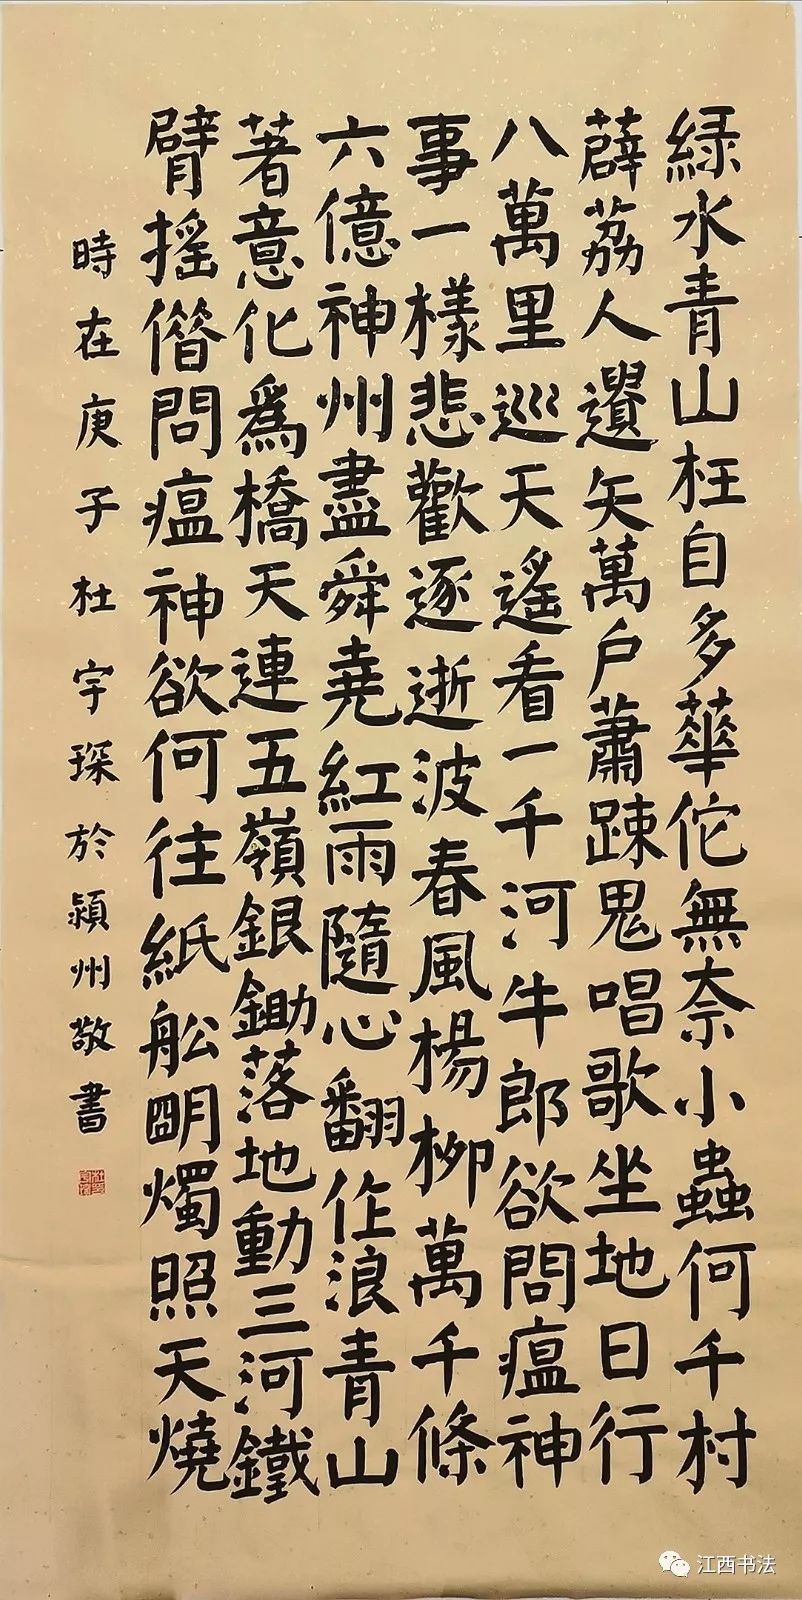 緑水青山枉自多華佗無奈小蟲何千村
薜荔人遺矢萬户蕭踈鬼唱歌坐地日行
八萬里巡天遙看一千河牛郎欲問瘟神
事一樣悲歡逐逝波春風楊柳萬千條
六億神州盡舜堯紅雨隨心翻作浪青山
著意化爲橋天連五嶺銀鋤落地動三河鐵
臂搖僣問瘟神欲何往紙舩朙燭照天燒
時在庚子杜宇琛於潁州敬書
江西书法